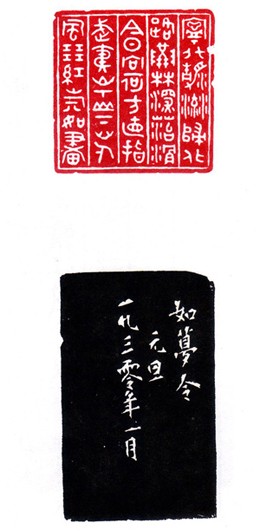 寧化清流歸化
路隘林深苔滑
今日向何方直指
武夷山下
風展紅旗如畫
如夢令
元旦
一九三零年一月